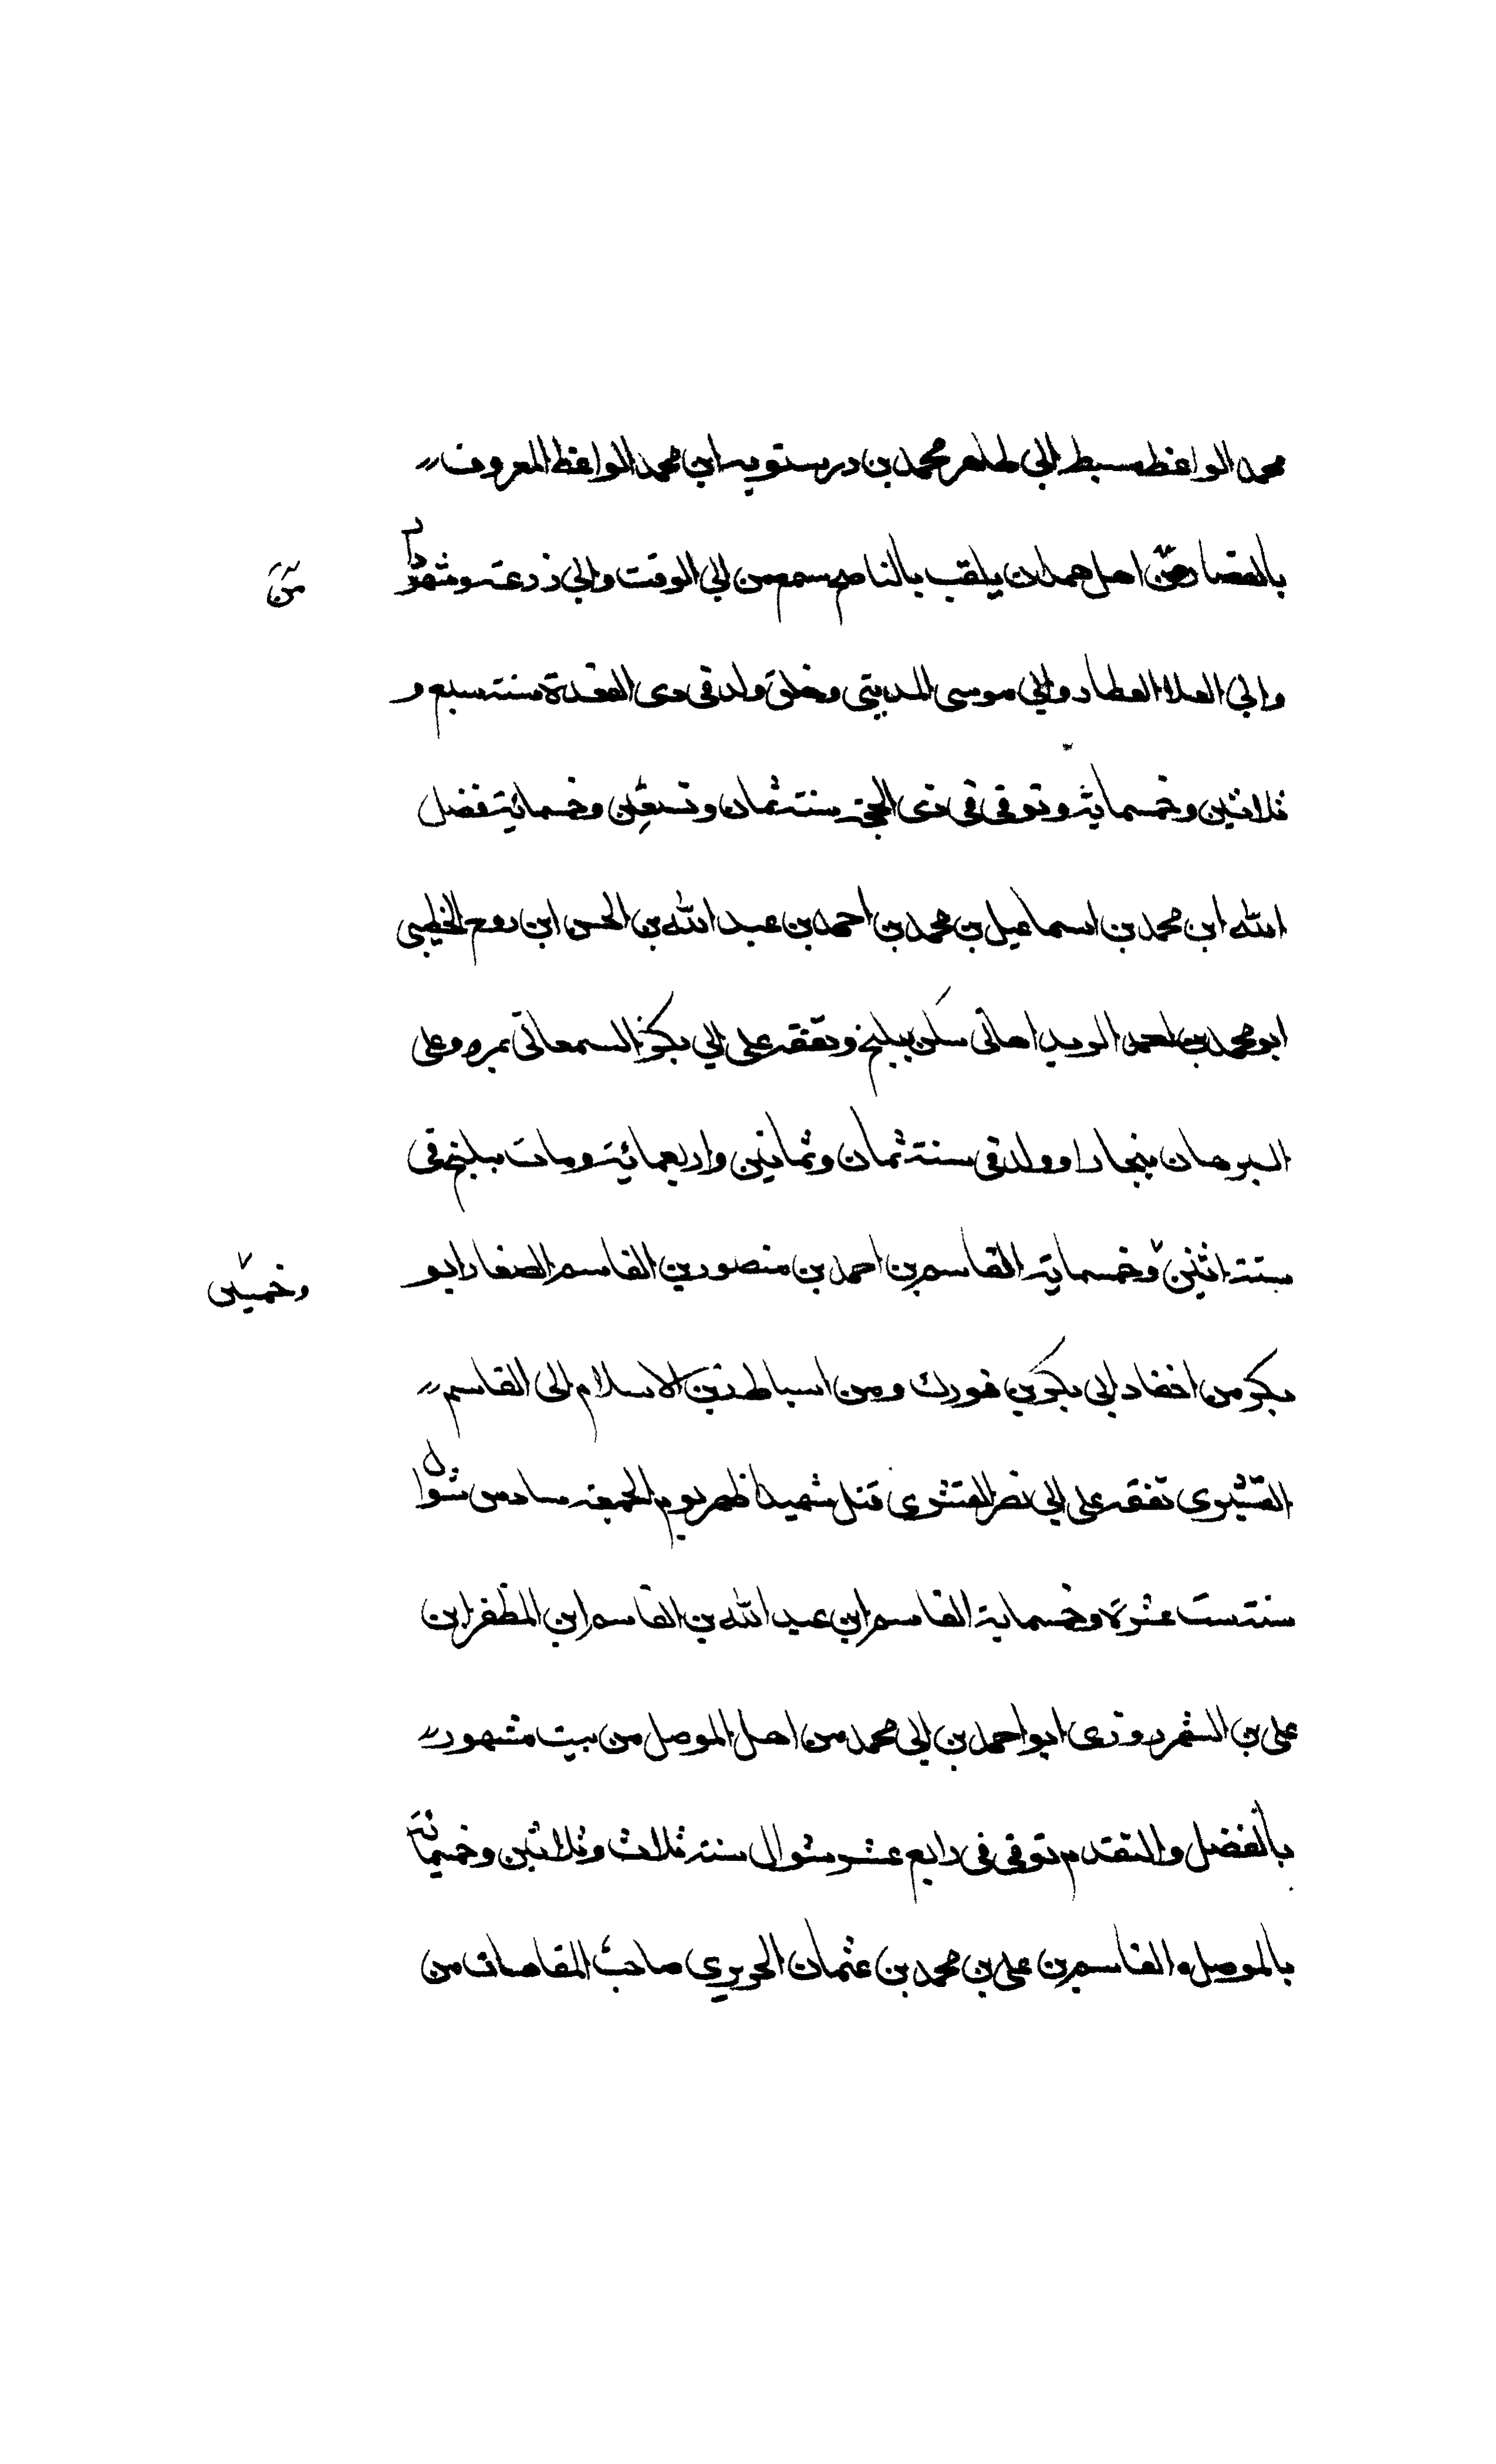 محمد الواعظ سبط ابي طاهر محمد بن درستويه ابن محمد الواعظ المعروف
بالقصار من اهل همدان يلقب بالناصح سمع من ابي الوقت وابي زرعة وشهردار
من
وابي العلا العطار وابي موسى المديني وخلق ولد في ذى القعدة سنة سبع و
ثلاثين وخمسماية وتوفي في ذى الحجة سنة ثمان وتسعين وخمسمائة فضل
الله ابن محمد بن اسماعيل بن محمد بن احمد بن عبد الله بن الحسن ابن روح الخطيبى
ابو محمد بن احمد سكن ببلخ وتفقه على ابي بكر السمعاني بمرو وعلى
البرهان ببخارا وولد في سنة ثمان وثمانين واربعمائة ومات ببلخ في
سنة اثنين وخمسماية القاسم بن احمد بن منصور بن القاسم الصفار ابو
وخمسين
بكر من احفاد ابى بكر بن فورك ومن اسباط زين الاسلام ابى القاسم
القشيرى تفقه على ابي نصر القشيرى قتل شهيدا ظهر يوم الجمعة سادس شوال
سنة ست عشرة وخمسماية القاسم ابن عبد الله بن القاسم ابن المظفر ابن
على بن الشهرزورى ابو احمد بن ابى محمد من اهل الموصل من بيت مشهور
بالفضل والتقدم توفي في رابع عشر شوال سنة ثلاث وثلاثين وخمسمائة
بالموصل القاسم بن على بن محمد بن عثمان الحريري صاحب المقامات من